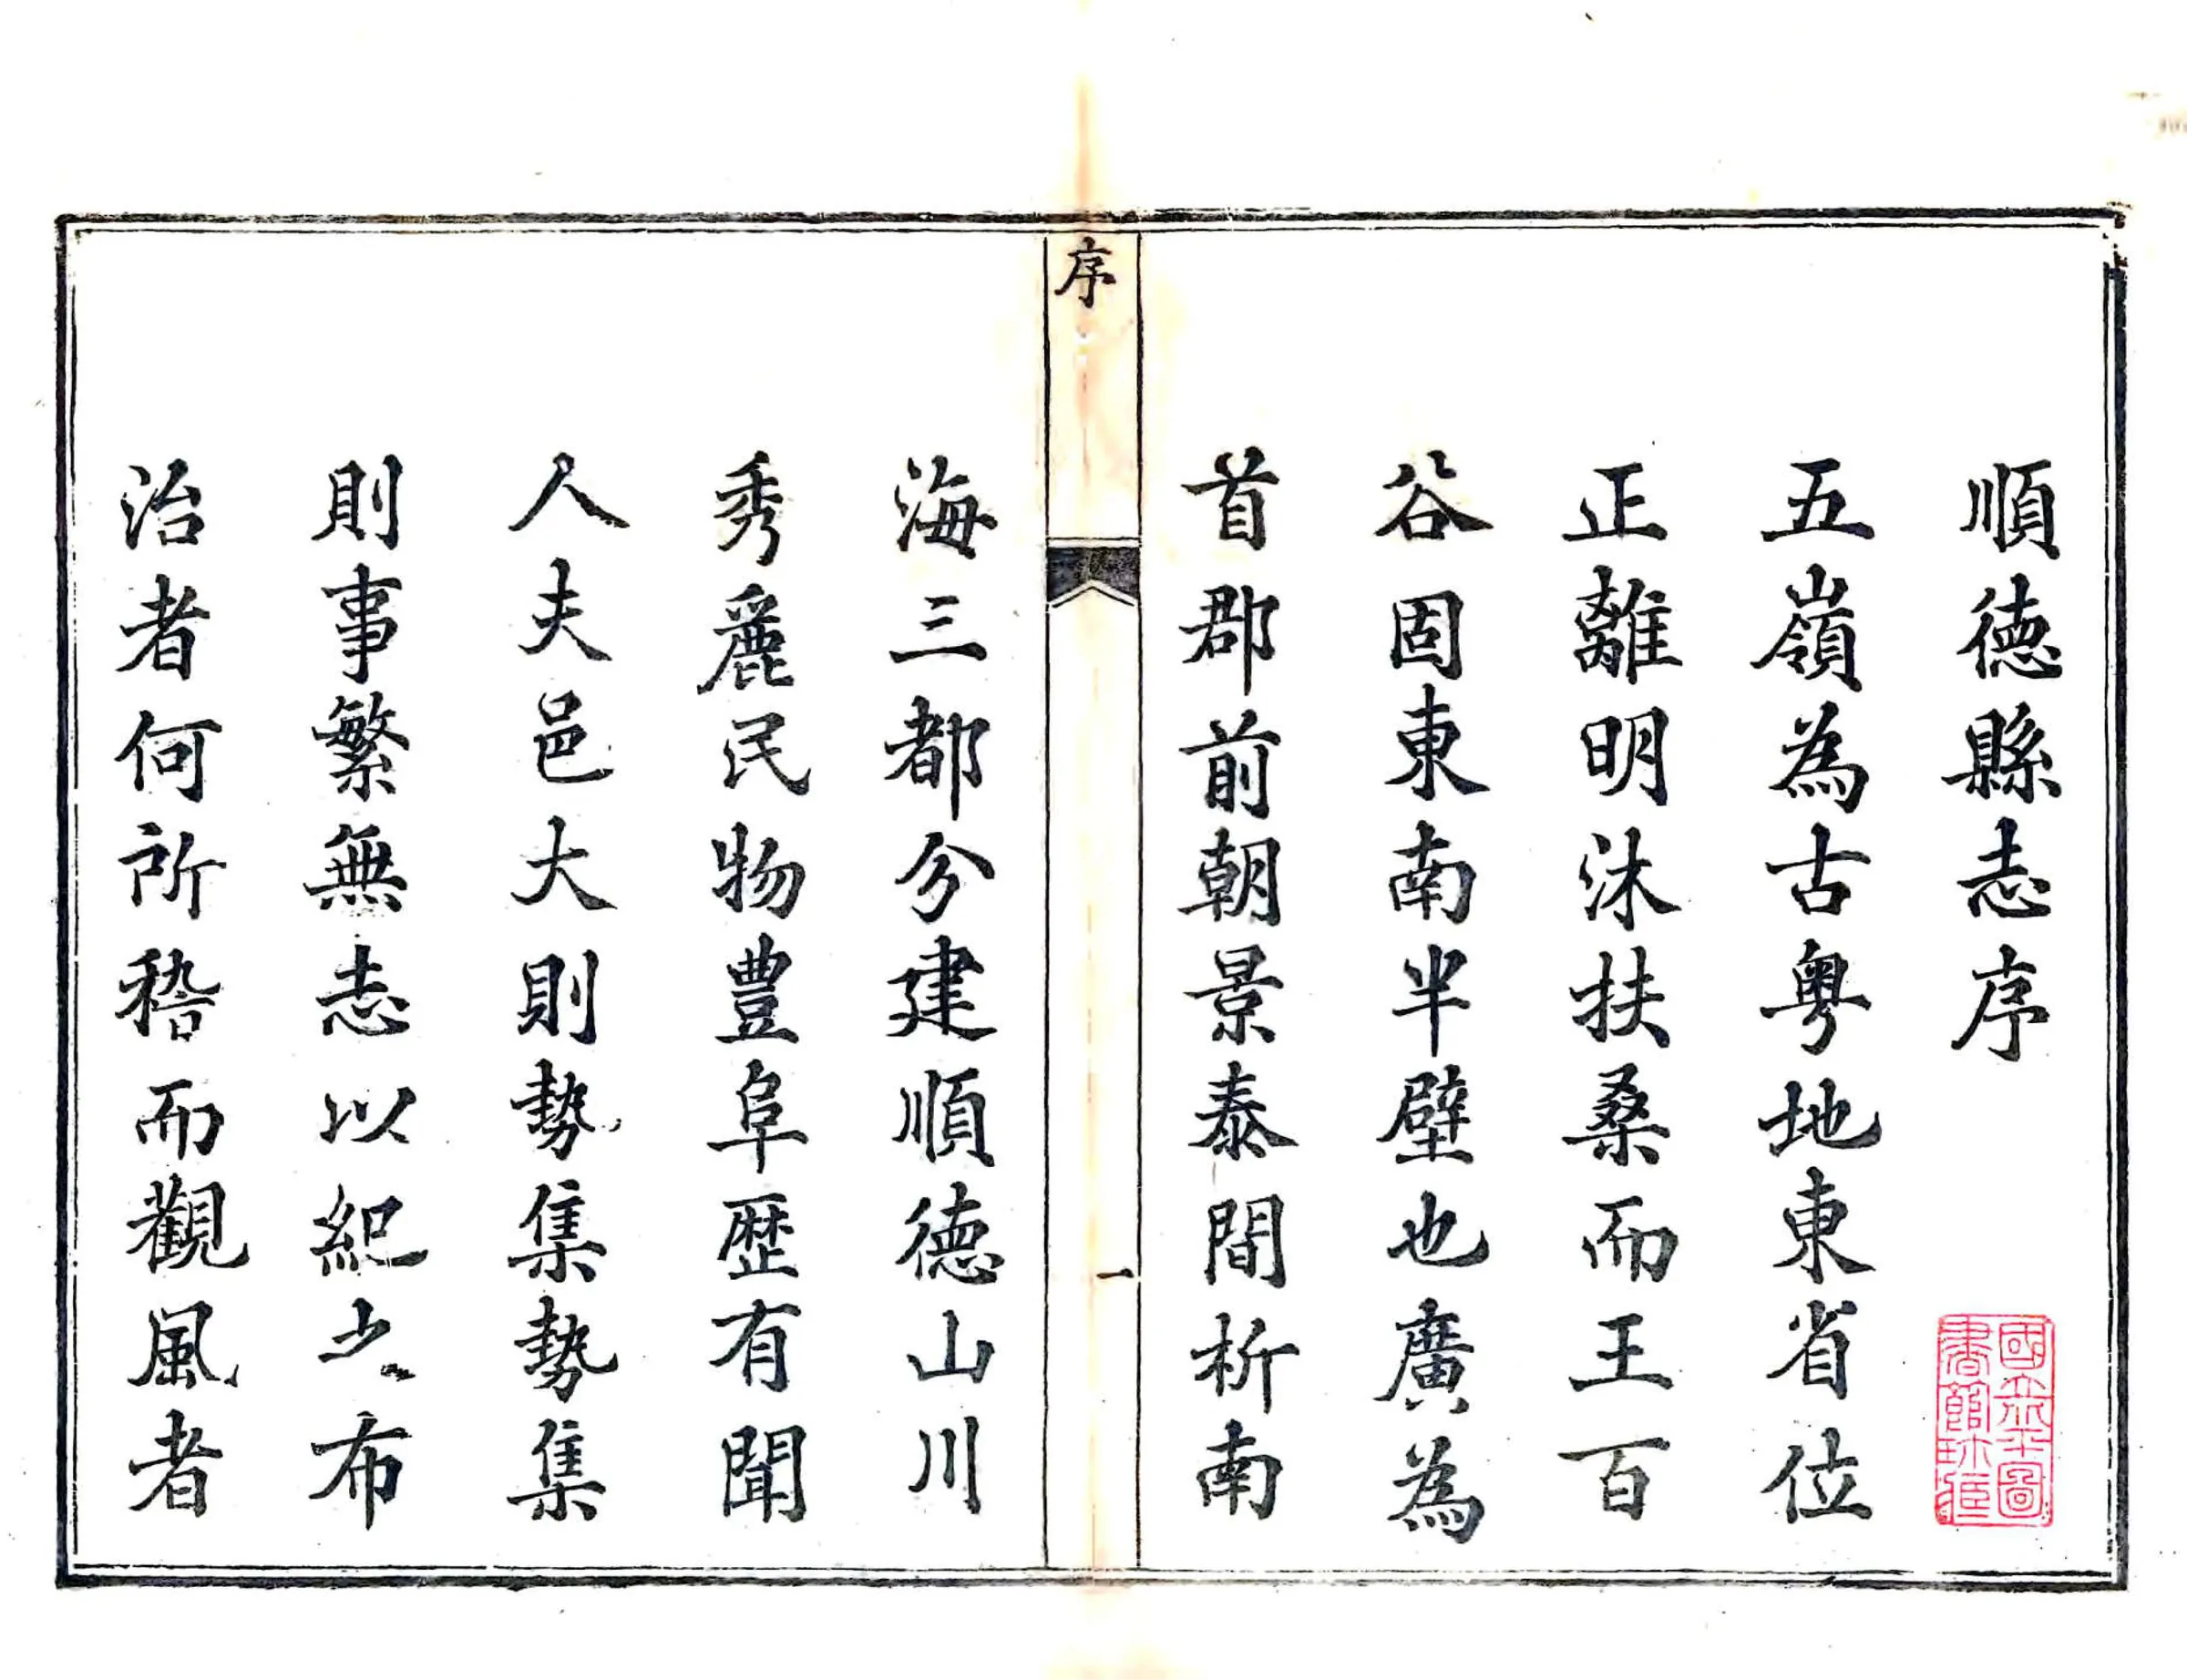 順德縣志序
五嶺為古粵地東省位
正離明沐扶桑而王百
谷固東南半壁也廣為
首郡前朝景泰間析南
序
一
海三都分建順德山川
秀麗民物豊阜歴有聞
人夫邑大則勢集勢集
則事繁無志以紀之布
治者何所稽而觀風者
國立北平圖
書館所藏